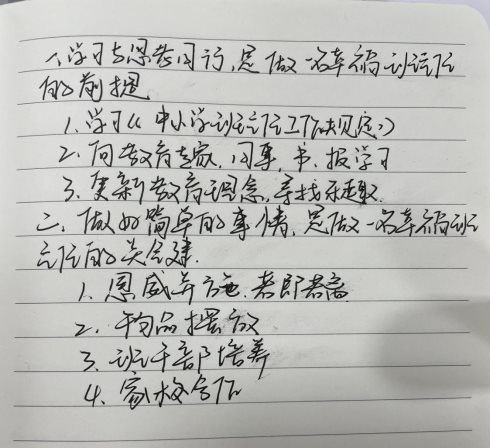 一、学习与思考同行,是做一名幸福班主任
的前提
1、学习《中小学班主任工作规定》
2、向教育专家、同事、书、报学习
3、更新教育理念,寻找乐趣.
二、做好简单的事情,是做一名幸福班
主任的关键.
1、恩威并施、若即若离
2、物品摆放
3、班干部培养
4、家校合作